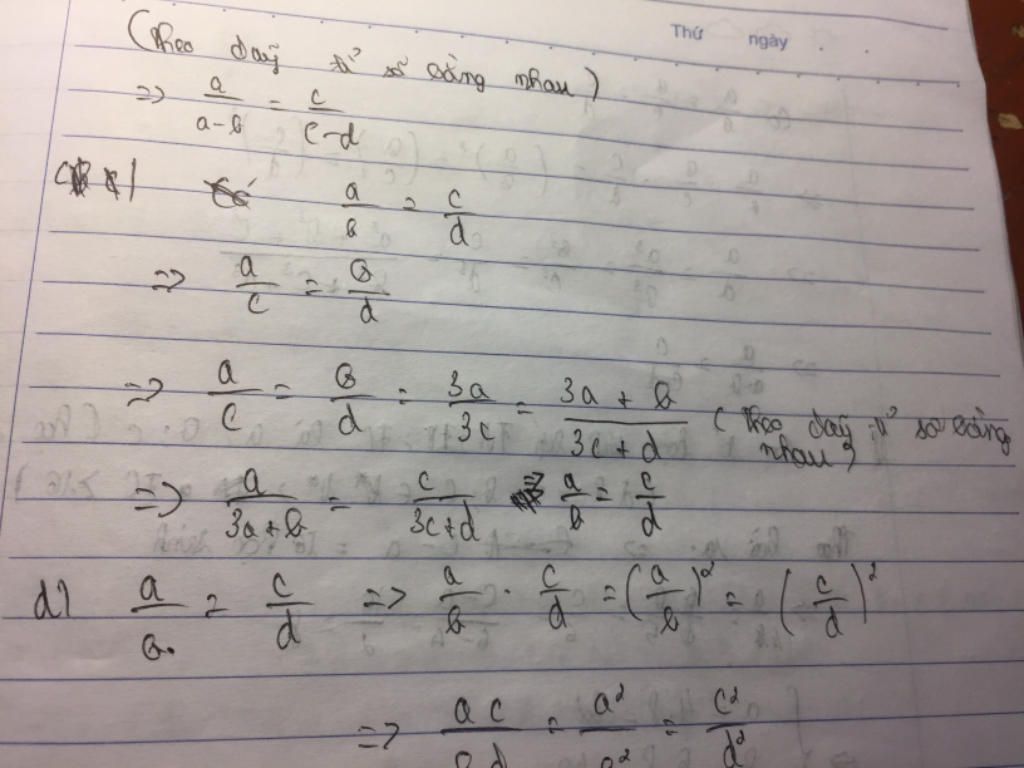 Thứ ngày
(Theo dãy tỉ số bằng nhau)
=> a/(a-b) = c/(c-d)
c) a/b = c/d
=> a/c = b/d
=> a/c = b/d = 3a/3c = (3a + b)/(3c + d) (Theo dãy tỉ số bằng nhau)
=> a/(3a+b) = c/(3c+d) => a/b = c/d
d) a/b = c/d => a/b . c/d = (a/b)² = (c/d)²
=> ac/bd = a²/b² = c²/d²